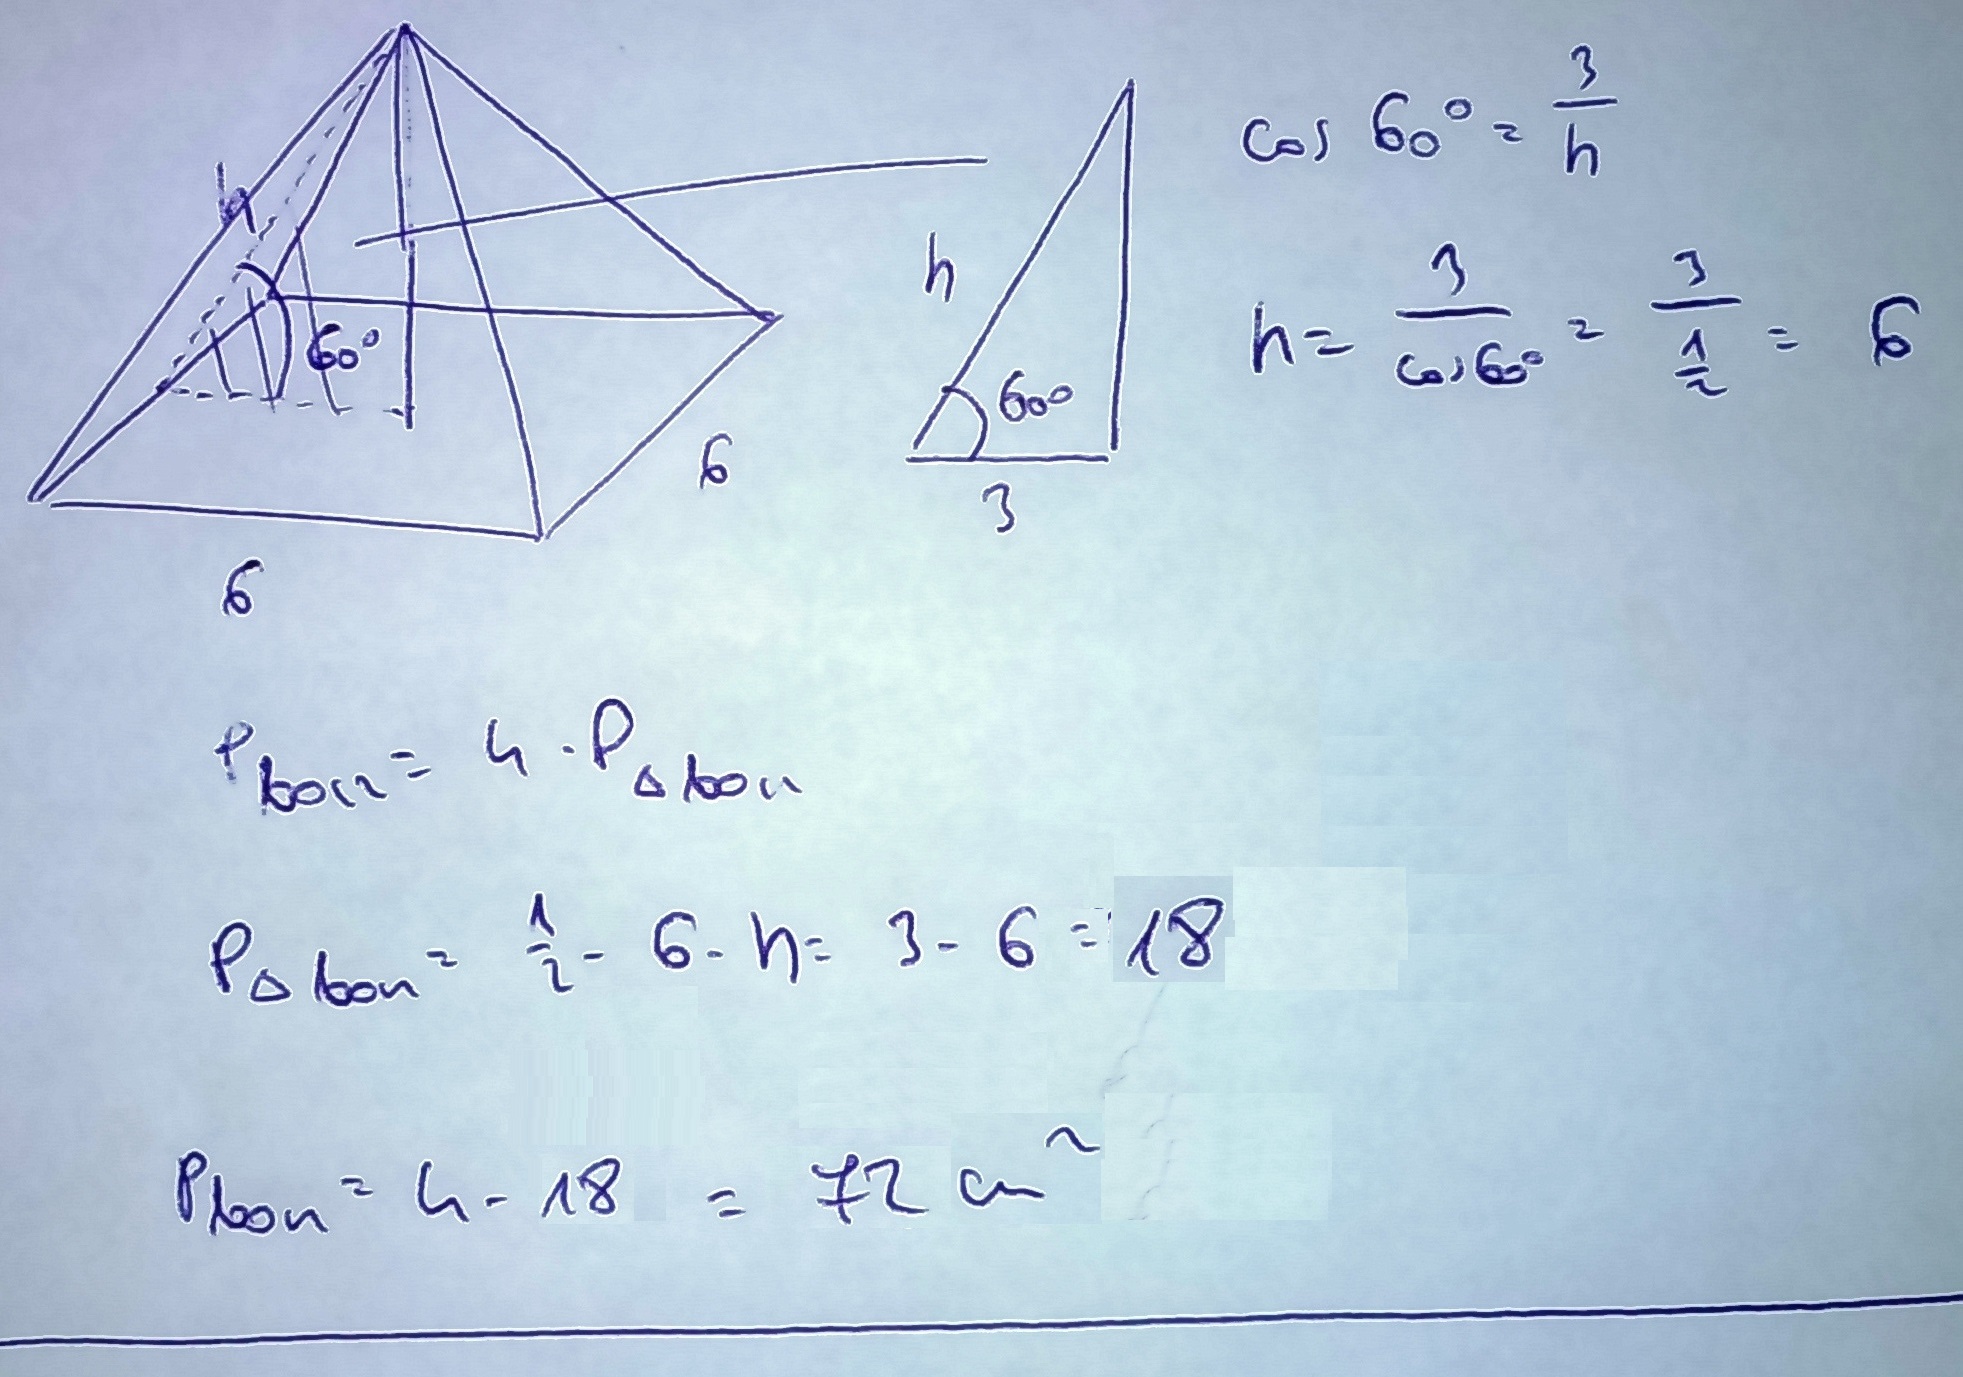 h
60°
6
6
h
60°
3
cos 60° = 3/h
h = 3/cos60° = 3/(1/2) = 6
P bocz = 4 · P Δ bocz
P Δ bocz = 1/2 · 6 · h = 3 · 6 = 18
P bocz = 4 · 18 = 72 cm²